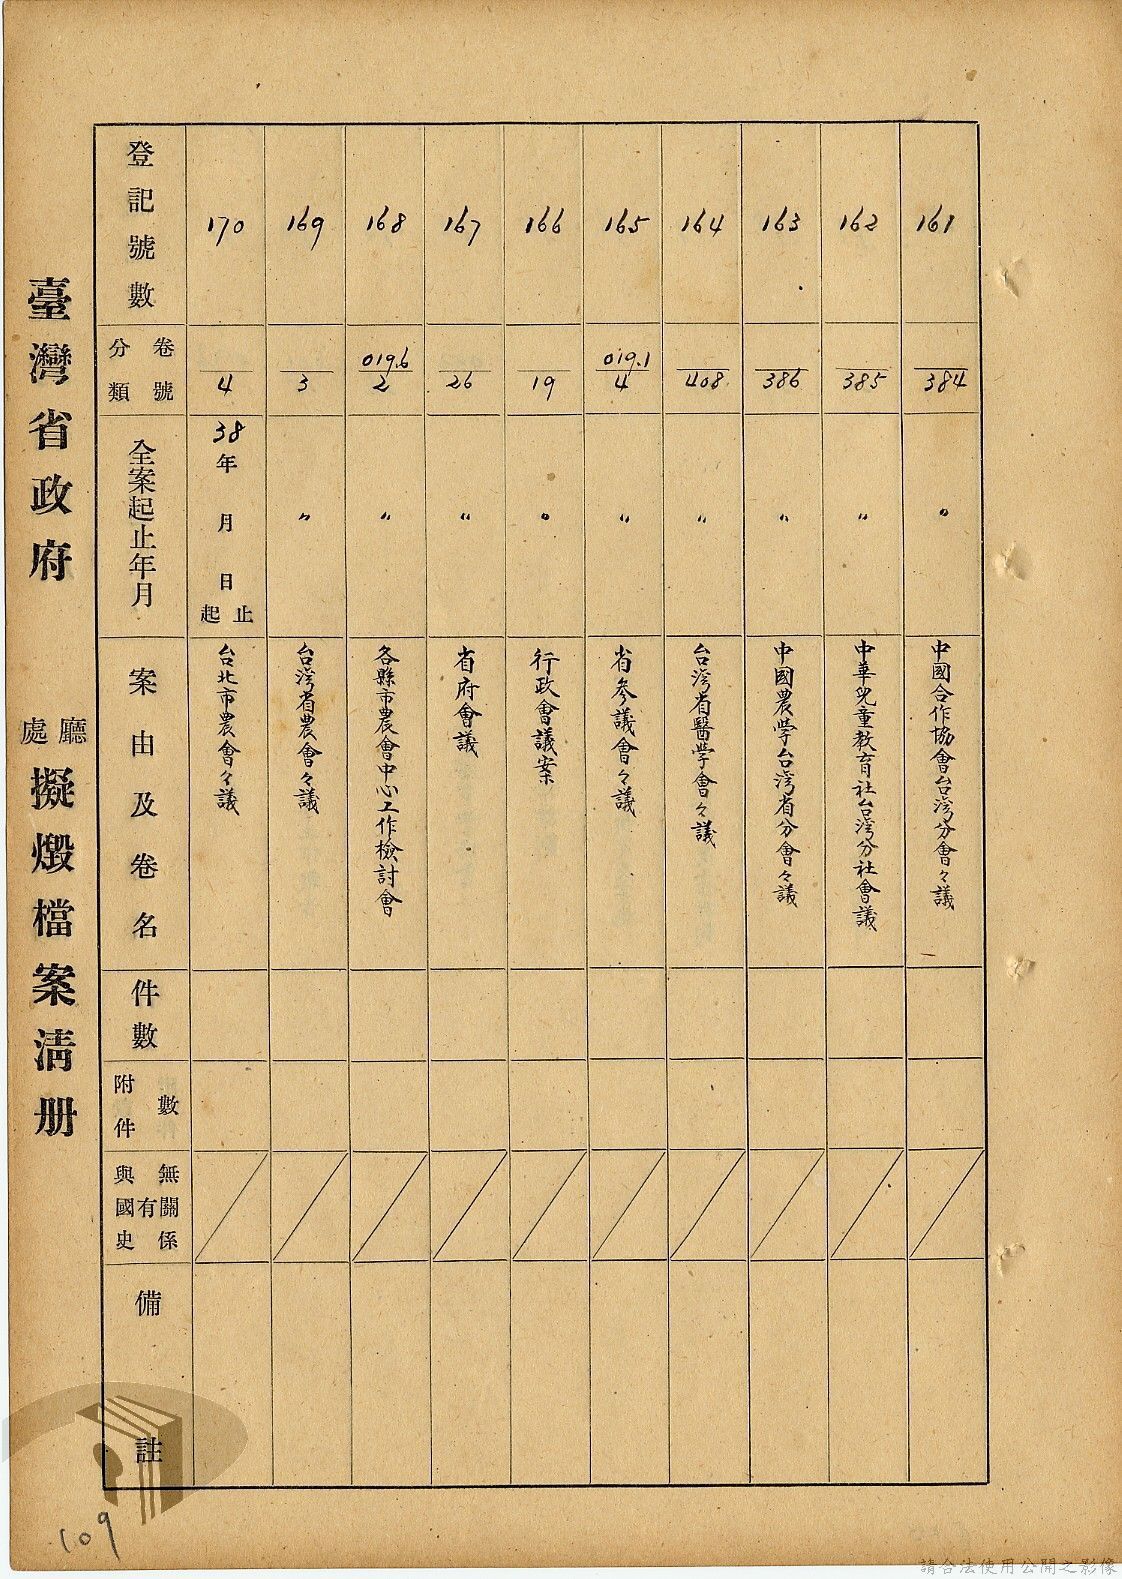 臺灣省政府 廳處擬燬檔案清册
登記號數
分類 卷號
全案起止年月
案由及卷名
件數
附件數
與國史有無關係
備註
170
4
38年 月 日起止
台北市農會々議
169
3
〃
台灣省農會々議
168
019.6
2
〃
各縣市農會中心工作檢討會
167
26
〃
省府會議
166
19
〃
行政會議案
165
019.1
4
〃
省參議會々議
164
408
〃
台灣省醫學會々議
163
386
〃
中國農學台灣省分會々議
162
385
〃
中華兒童教育社台灣分社會議
161
384
〃
中國合作協會台灣分會々議
109
請合法使用公開之影像